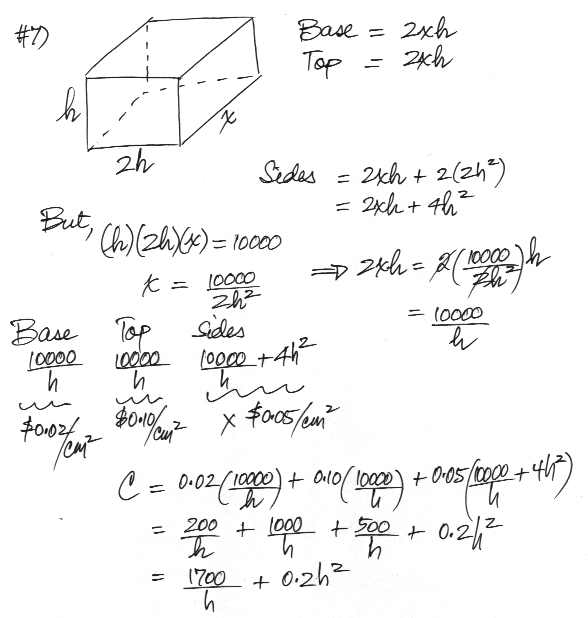 #7)
Base = 2xh
Top = 2xh
h
x
2h
Sides = 2xh + 2(2h²)
= 2xh + 4h²
But, (h)(2h)(x) = 10000
x = 10000/2h² ⇒ 2xh = 2(10000/2h²)h
= 10000/h
Base Top Sides
10000/h 10000/h 10000/h + 4h²
$0.02/cm² $0.10/cm² × $0.05/cm²
C = 0.02(10000/h) + 0.10(10000/h) + 0.05(10000/h + 4h²)
= 200/h + 1000/h + 500/h + 0.2h²
= 1700/h + 0.2h²